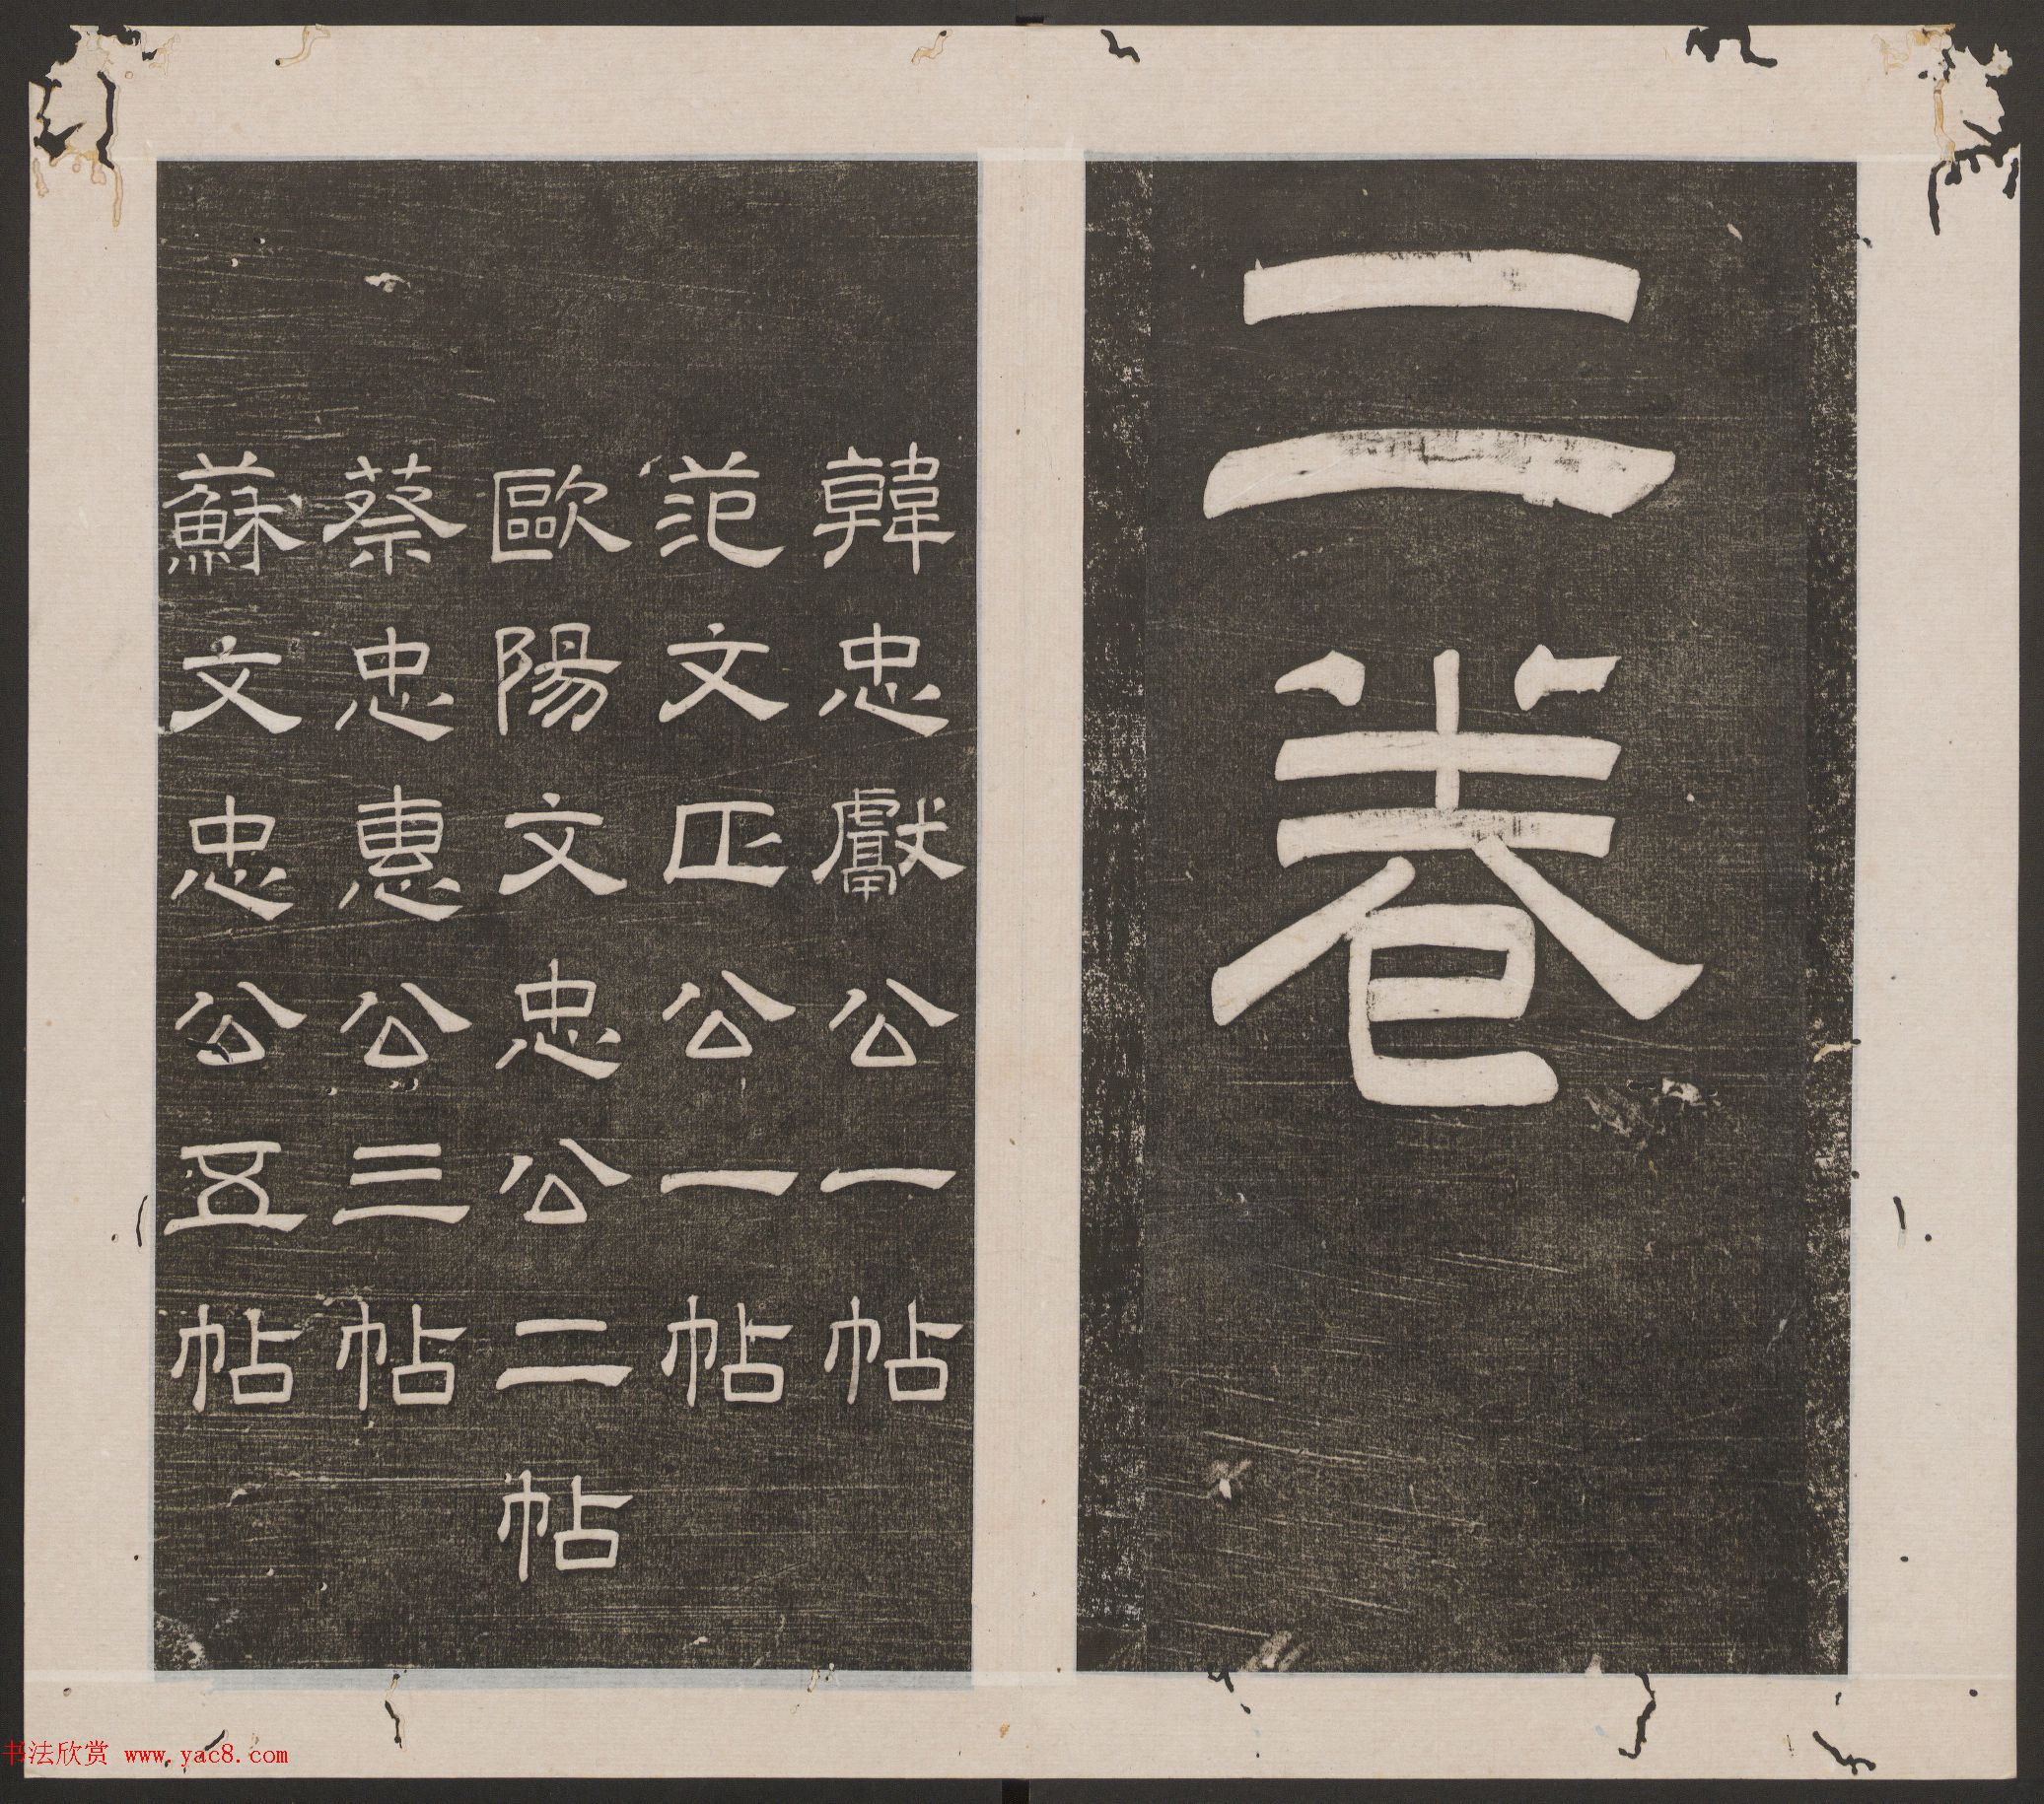 二卷
韓忠獻公一帖
范文正公一帖
歐陽文忠公二帖
蔡忠惠公三帖
蘇文忠公五帖
书法欣赏 www.yac8.com